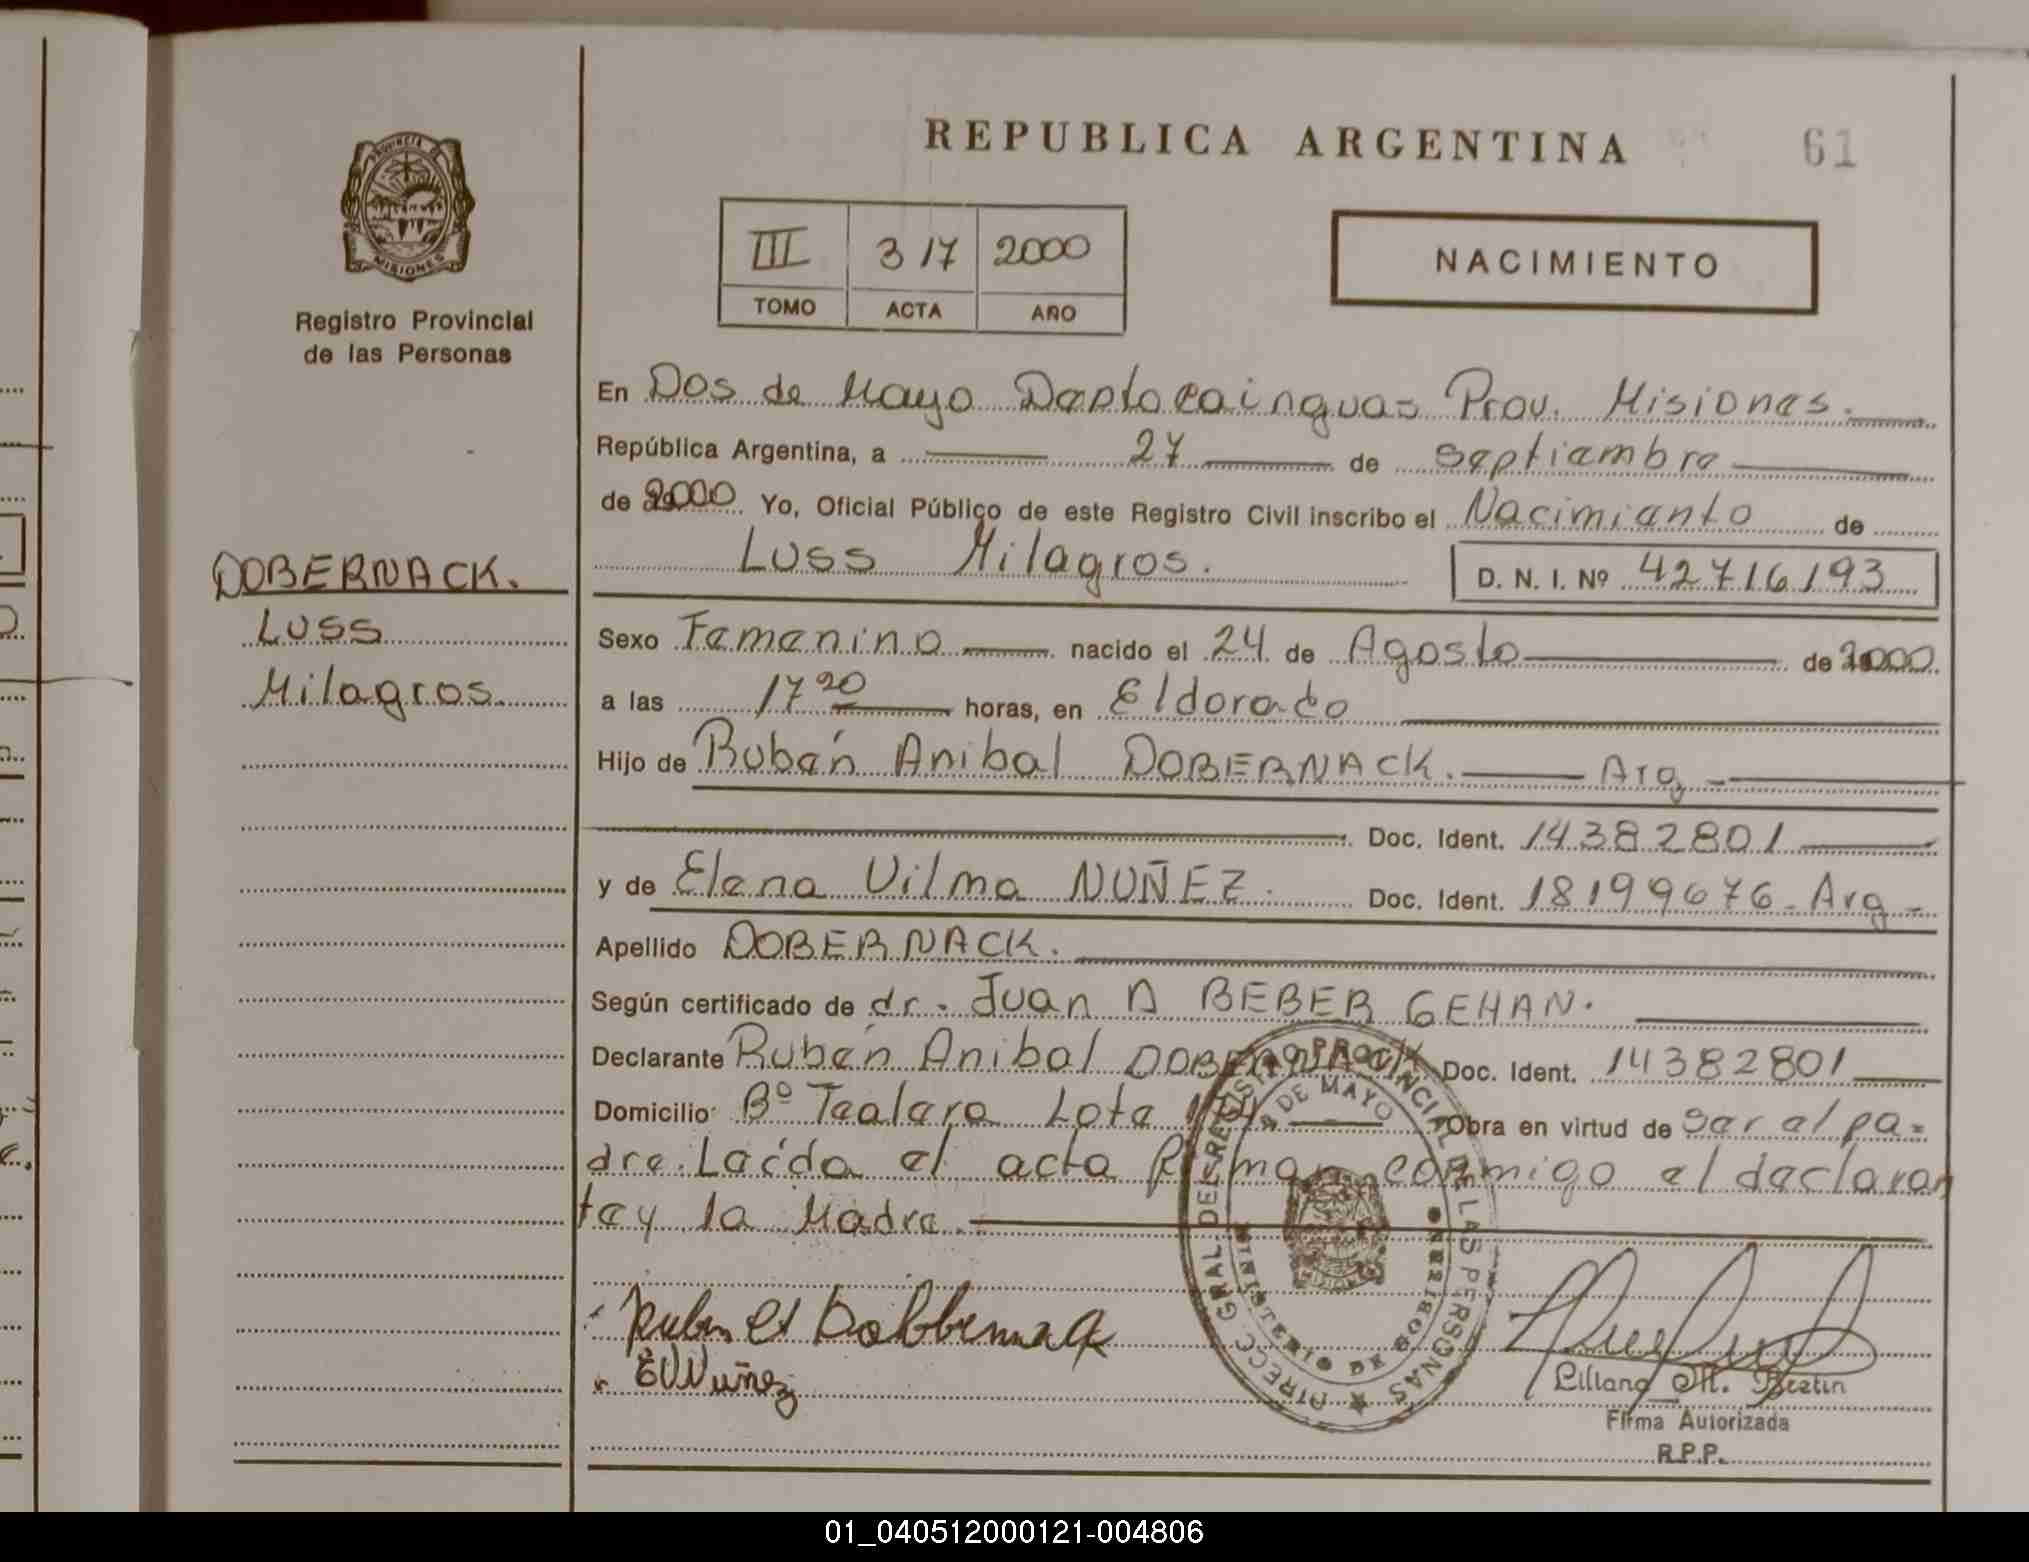 REPUBLICA ARGENTINA
61
PROVINCIA DE
MISIONES
Registro Provincial
de las Personas
III 317 2000
TOMO ACTA AÑO
NACIMIENTO
En Dos de Mayo Depto Cainguas Prov. Misiones.
República Argentina, a 27 de Septiembre
de 2000 Yo, Oficial Público de este Registro Civil inscribo el Nacimiento de
Luss Milagros.
D. N. I. Nº 42716193
DOBERNACK.
Luss
Milagros.
Sexo Femenino nacido el 24 de Agosto de 2000
a las 17 20 horas, en Eldorado
Hijo de Rubén Anibal DOBERNACK. Arg
Doc. Ident. 14382801
y de Elena Vilma NUÑEZ. Doc. Ident. 18199676 - Arg -
Apellido DOBERNACK.
Según certificado de dr. Juan A BEBER GEHAN.
Declarante Rubén Anibal DOBERNACK Doc. Ident. 14382801
Domicilio Bº Lote Obra en virtud de ser el pa=
dre. Leída el acta firman conmigo el declaran
te y la Madre.
DIRECC GRAL DEL REGISTRO PROVINCIAL DE LAS PERSONAS
2 DE MAYO
MINISTERIO DE GOBIERNO
E V Nuñez
Liliana M. Bertin
Firma Autorizada
R.P.P.
01_040512000121-004806